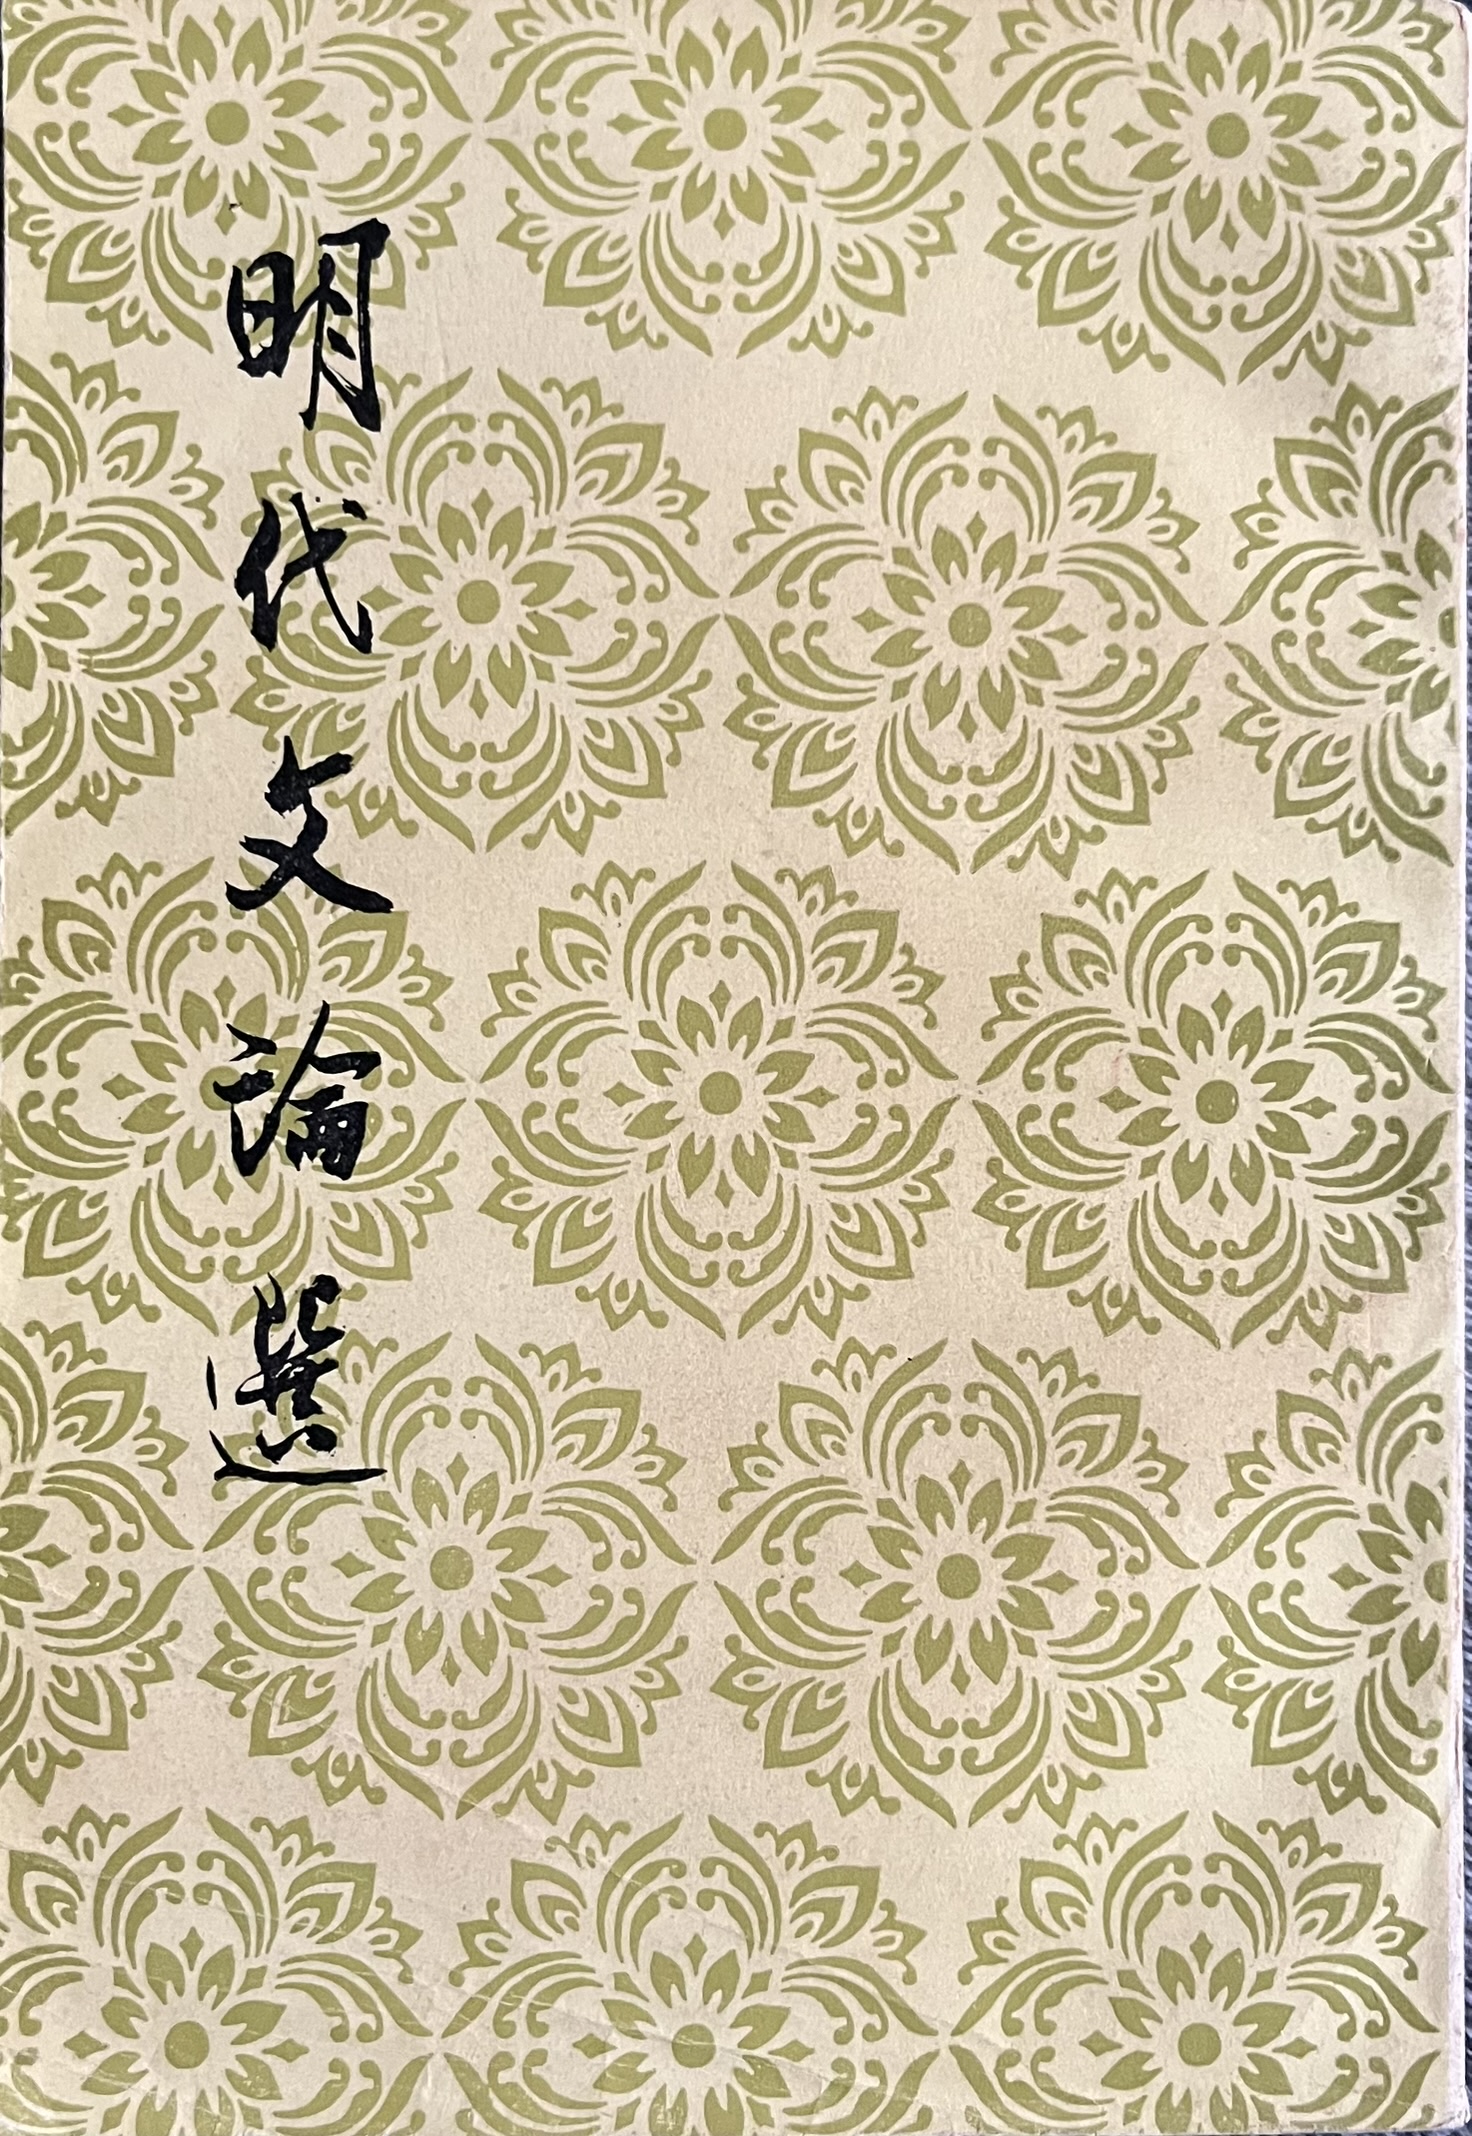 明代文論選